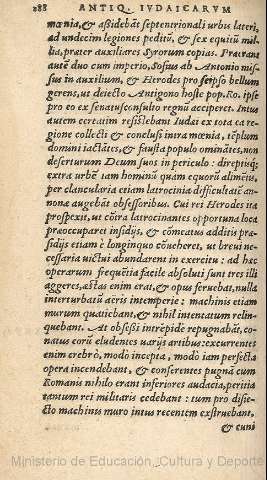 288 ANTIQ. IVDAICARVM
mœnia, & assidebāt septentrionali vrbis lateri,
ad undecim legiones peditū, & sex equiūm mil-
lia, præter auxiliares Syrorum copias. Præerant
autē duo cum imperio, Sosius ab Antonio mis-
sus in auxilium, & Herodes pro seipso bellum
gerens, ut deiecto Antigono hoste pop. Ro. ipse
pro eo ex senatusconsulto regnū acciperet. Intus
autem certatim resistebant Iudæi ex tota ea re-
gione collecti & conclusi intra mœnia, tēplum
domini iactātes, & fausta populo ominātes, non
deserturum Deum suos in periculo: direptisq;
extra urbē tam hominū quam equorū alimētis,
per clancularia etiam latrocinia difficultatē an-
nonæ augebāt obsessoribus. Cui rei Herodes ita
prospexit, ut cōtra latrocinantes oportuna loca
præoccuparet insidijs, & cōmeatus additis præ-
sidijs etiam è longinquo cōueheret, ut breui ne-
cessaria victui abundarent in exercitu: ad hæc
operarum frequētia facile absoluti sunt tres illi
aggeres, æstas enim erat, & opus feruebat, nulla
interturbāte aëris intemperie: machinis etiam
murum quatiebant, & nihil intentatum relin-
quebant. At obsessi intrepidè repugnabāt, co-
natus eorū eludentes varijs artibus: excurrentes
enim crebrò, modò incepta, modò iam perfecta
opera incendebant, & conserentes pugnā cum
Romanis nihilo erant inferiores audacia, peritia
tantum rei militaris cedebant: tum pro disie-
cto machinis muro intus recentem exstruebant,
& cuni
Ministerio de Educación, Cultura y Deporte